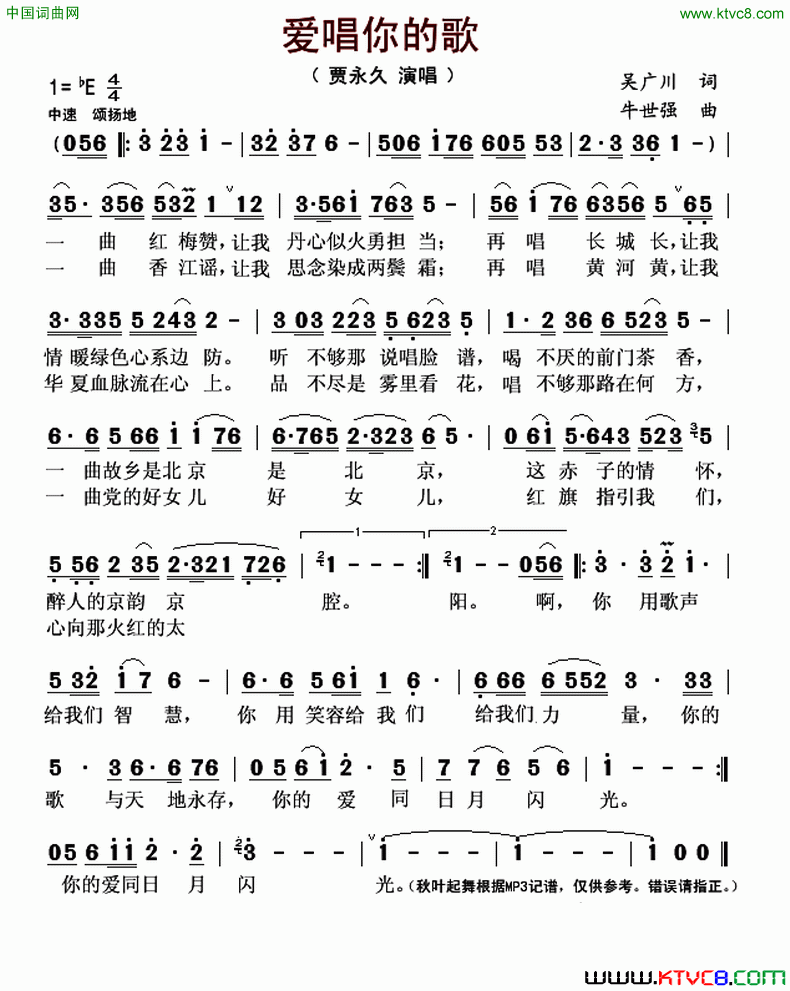 中国词曲网
www.ktvc8.com
爱唱你的歌
（ 贾永久 演唱 ）
1= ♭E 4/4
吴广川 词
中速 颂扬地
牛世强 曲
(056 ‖: 3 23 1 – | 32 37 6 – | 506 176 605 53 | 2·3 36 1 – ) |
35· 356 532 1 12 | 3·561 763 5 – | 56 1 76 6356 5 65 |
一 曲 红 梅赞，让我 丹心似火勇担 当； 再 唱 长 城 长，让我
一 曲 香 江谣，让我 思念染成两鬓 霜； 再 唱 黄 河 黄，让我
3·335 5 243 2 – | 3 03 223 5 623 5 | 1·2 36 6 523 5 – |
情 暖绿色心系边 防。 听 不够那 说唱脸 谱，喝 不厌的前门茶 香，
华 夏血脉流在心 上。 品 不尽是 雾里看 花，唱 不够那路在何 方，
6·6 5 66 1 1 76 | 6·765 2·323 6 5· | 0 61 5·643 523 35 |
一 曲故乡是北 京 是 北 京， 这 赤 子的情 怀，
一 曲党的好女 儿 好 女 儿， 红 旗 指引我 们，
1
2
5 56 2 35 2·321 726 | 21 – – – :‖ 21 – – 056 ‖: 3·3 3 2 1· |
醉人的京韵 京 腔。 阳。 啊， 你 用歌声
心向那火红的太
5 32 1 7 6 – | 6·6 5 61 1 6· | 6 66 6 552 3· 33 |
给我们 智 慧， 你 用 笑容给 我 们 给我们 力 量，你的
5 · 36·6 76 | 05 61 2· 5 | 7 76 6 56 | 1 – – :‖
歌 与天 地永存， 你的 爱 同 日 月 闪 光。
05 6 11 2·2 | 23 – – | 1 – – 1 – – | 1 0 0 ‖
你的爱同日 月 闪 光。（秋叶起舞根据MP3记谱，仅供参考。错误请指正。）
www.KTVC8.COM